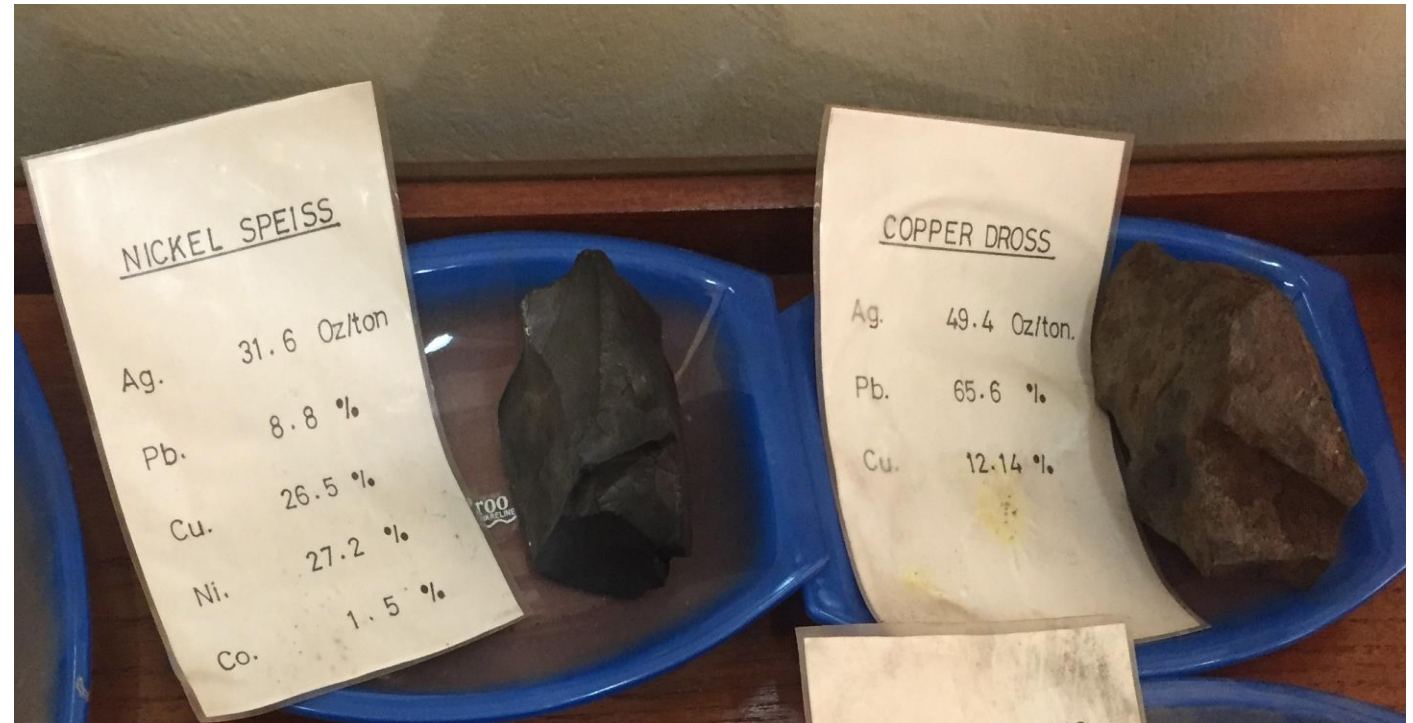 NICKEL SPEISS
Ag. 31.6 Oz/ton
Pb. 8.8 %
Cu. 26.5 %
Ni. 27.2 %
Co. 1.5 %
roo
COPPER DROSS
Ag. 49.4 Oz/ton.
Pb. 65.6 %
Cu. 12.14 %